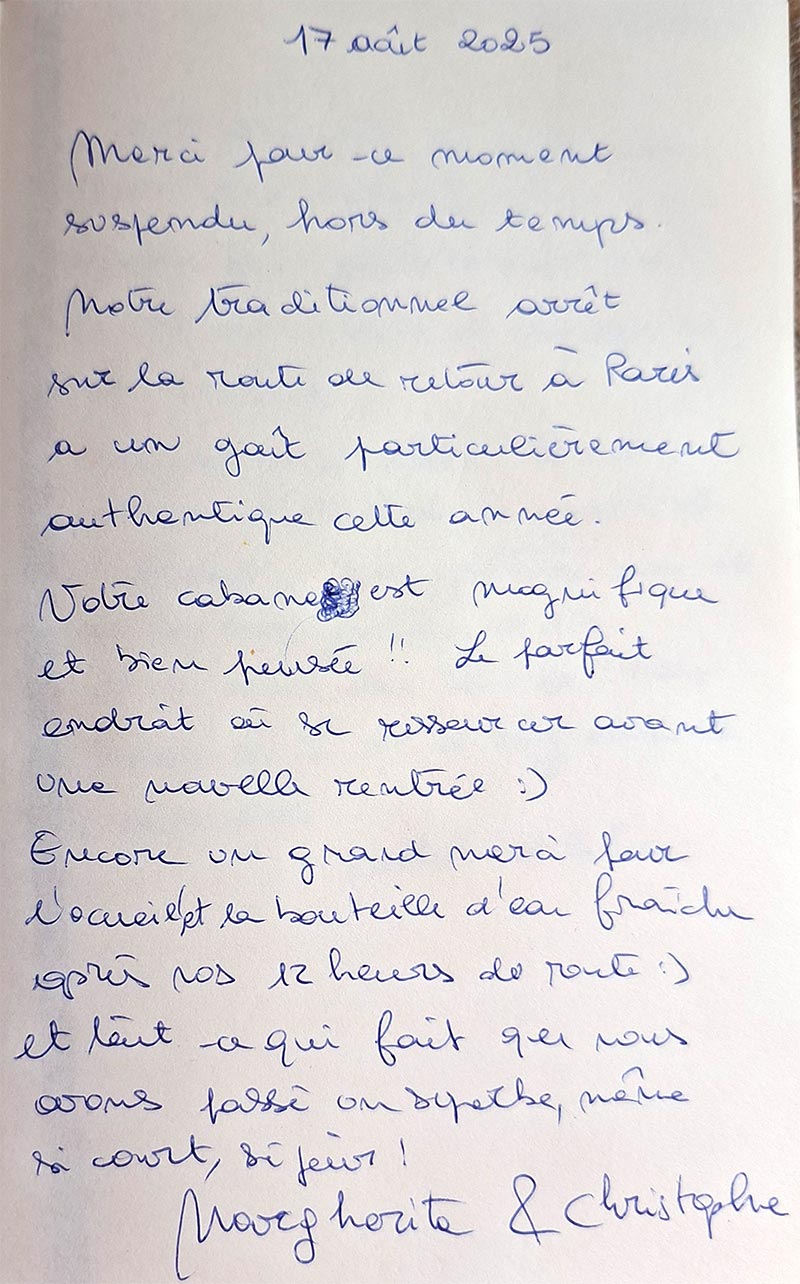 17 août 2025
Merci pour ce moment
suspendu, hors du temps.
Notre traditionnel arrêt
sur la route de retour à Paris
a un goût particulièrement
authentique cette année.
Votre cabane est magnifique
et bien pensée !! Le parfait
endroit où se ressourcer avant
une nouvelle rentrée :)
Encore un grand merci pour
l'acueil et la bouteille d'eau fraîche
après nos 12 heures de route :)
et tout ce qui fait que nous
avons passé un superbe, même
si court, séjour !
Margherita & Christophe